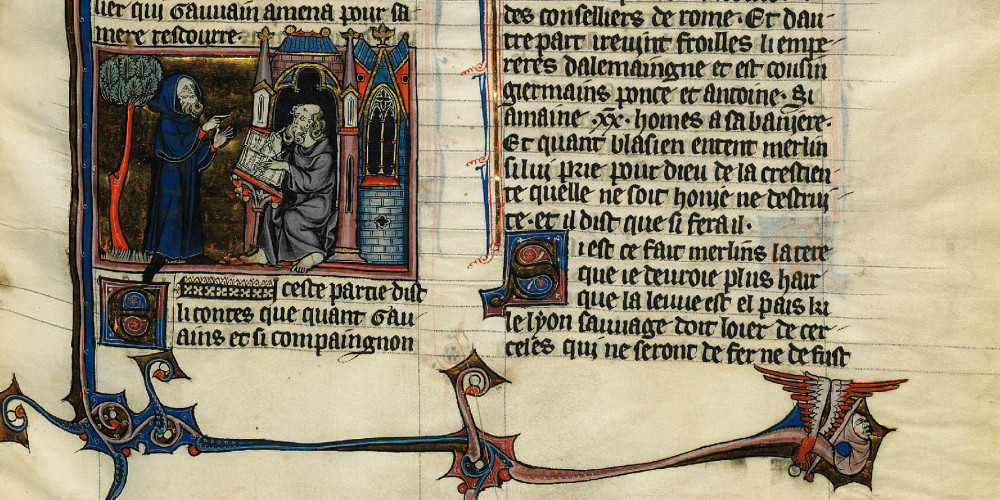 lier qui Gauuain amena pour sa
mere rescourre.
E
ceste partie dist
li contes que quant Gau
ains et si compaingnon
des conselliers de rome. Et dau
tre part i reuint froilles li empe
reres dalemaingne et est cousin
germains ponce et antoine. Si
amaine .xx. homes a sa baniere.
Et quant blasien entent merlin
si li prie pour dieu de la crestien
te quelle ne soit honie ne destrui
te. et il dist que si fera il.
Si est ce fait merlins la tere
que ie deuroie plus hair
que la leuue est el pais ki
le lyon sauuage doit loier de cer
celes qui ne seront de fer ne de fust